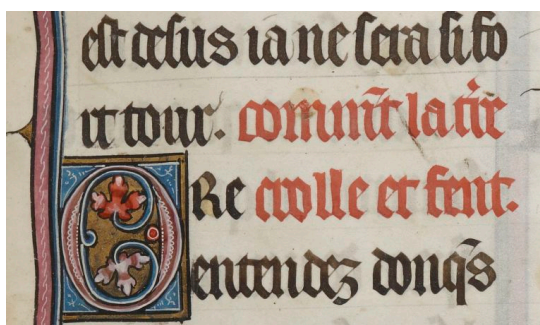 est desus ia ne sera si fo
rt tour. comm̄t la t̄re
ORe crolle et fent.
entendez donq̄s